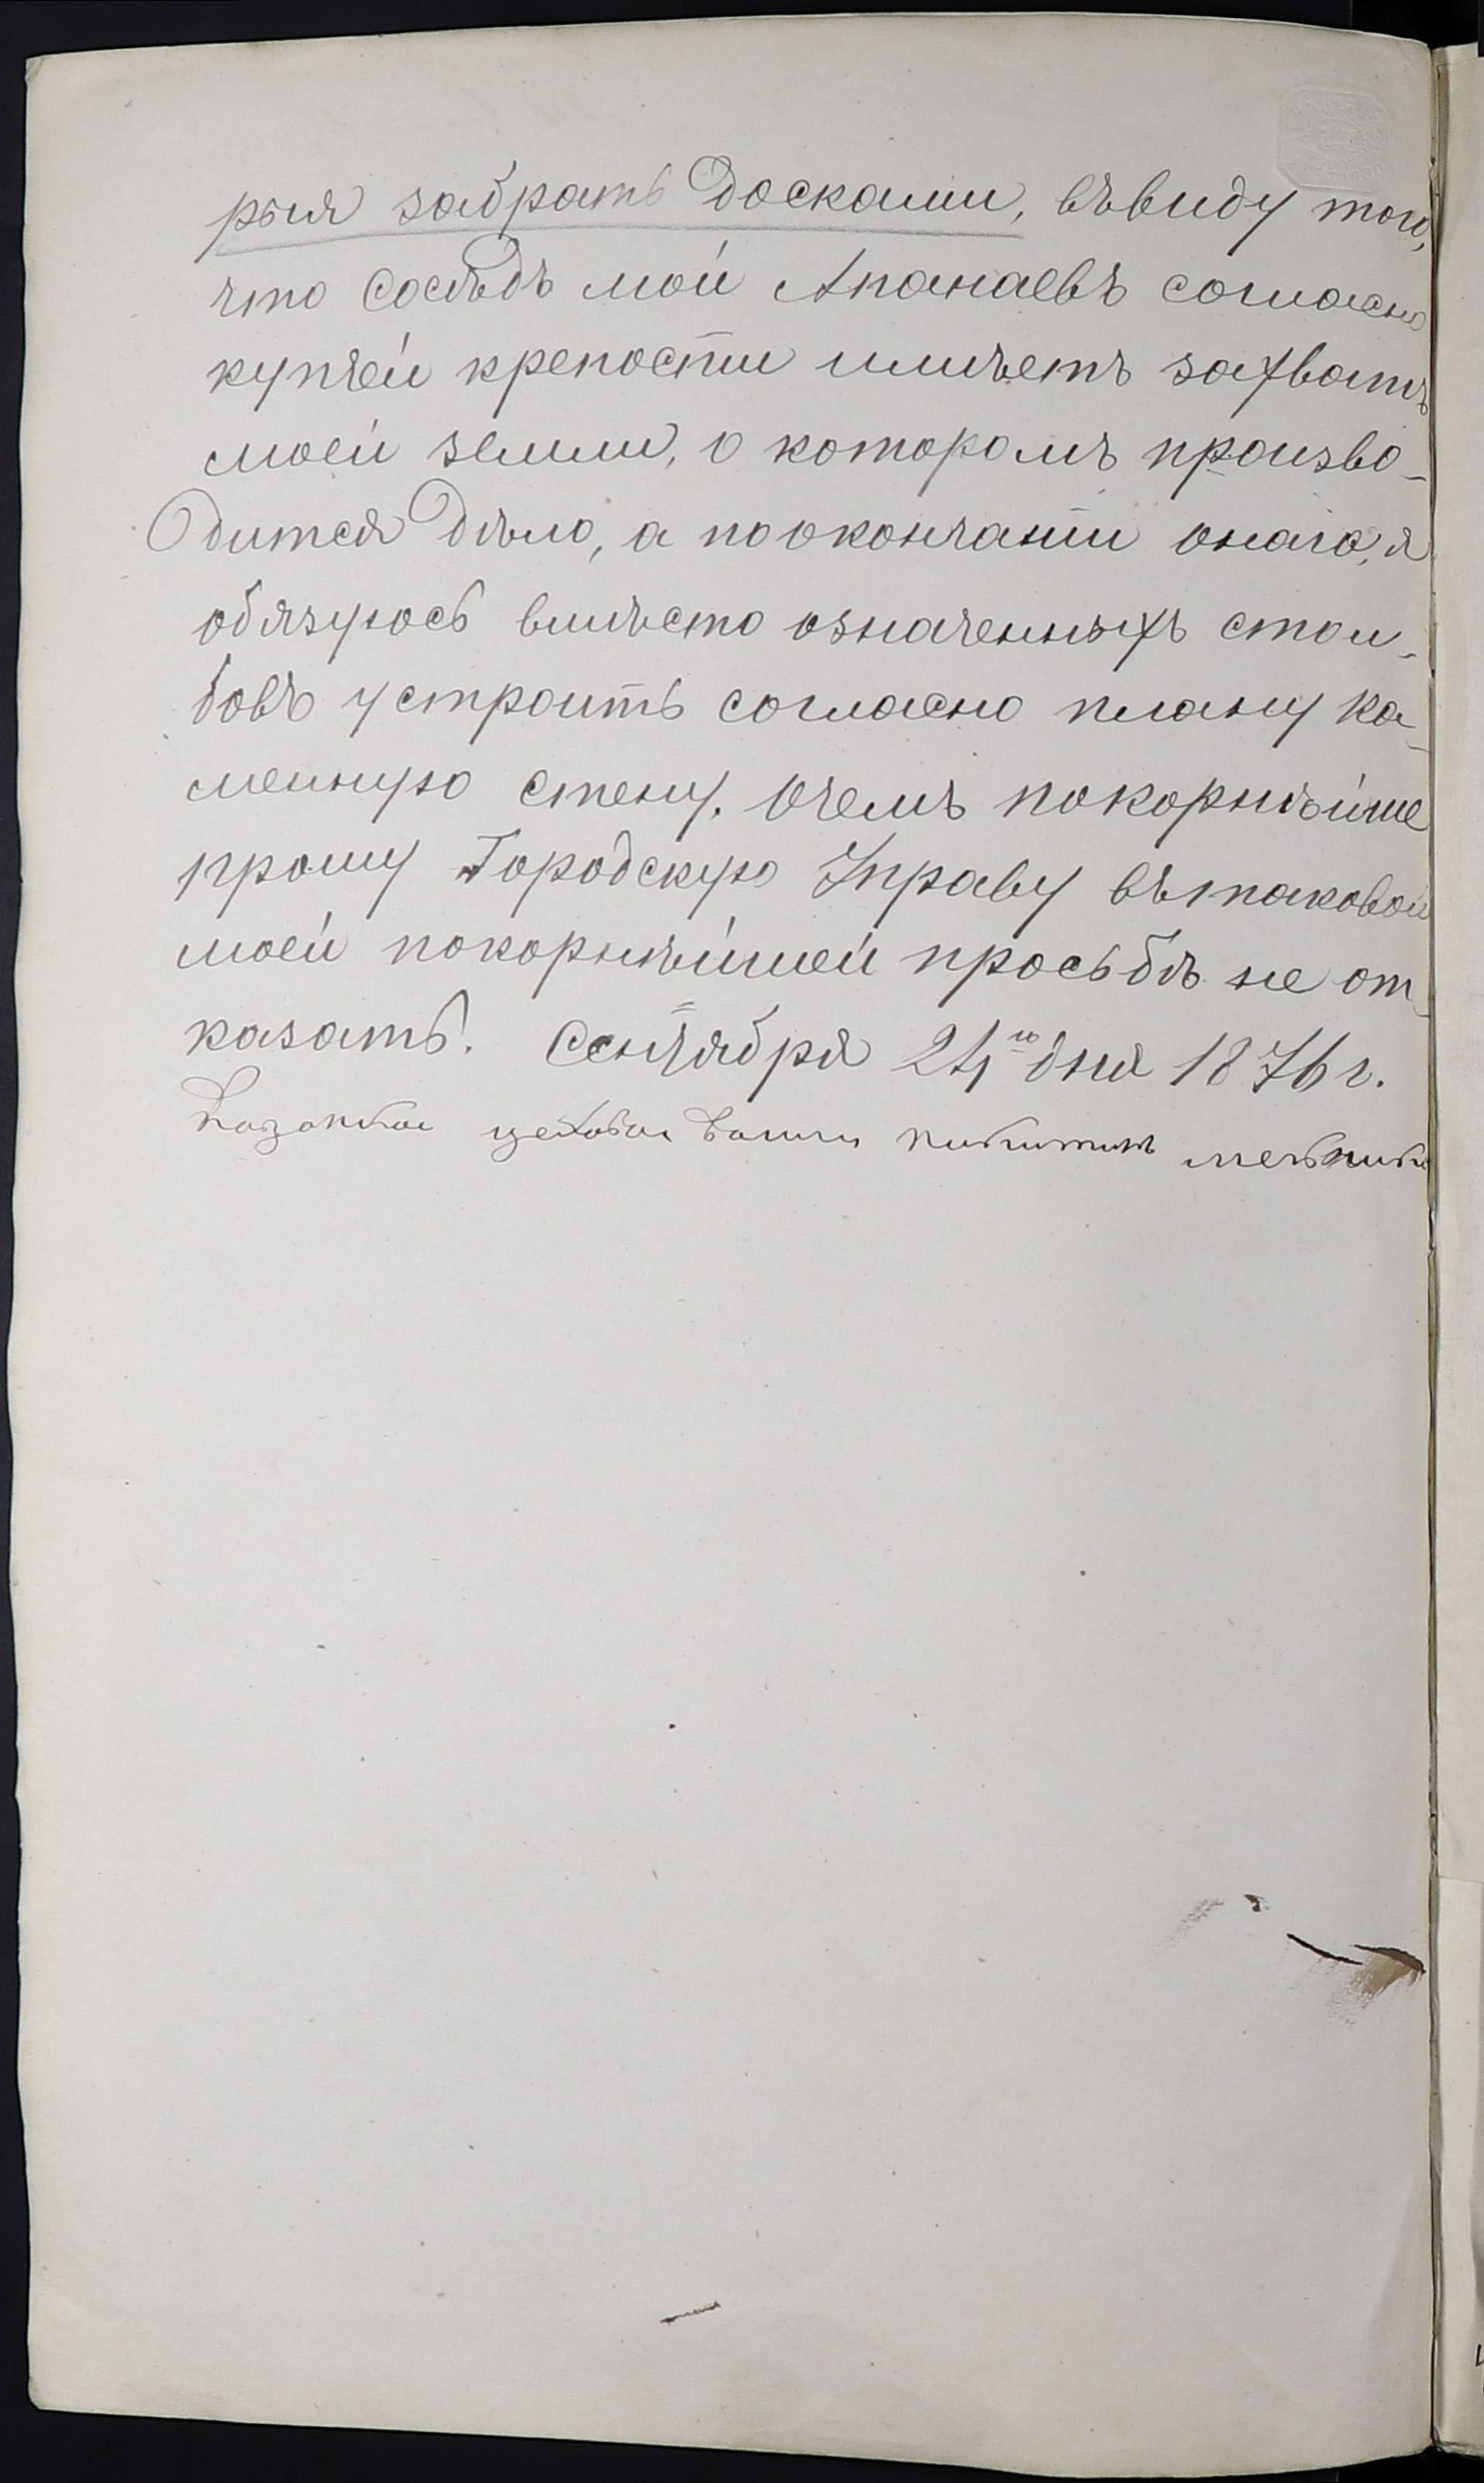 рыя забрать досками, въвиду того,
что сосѣдъ мой Апанаевъ согласно
купчей крепости имѣетъ захватъ
моей земли, о которомъ произво-
дится дѣло, а поокончанiи онаго, я
обязуюсь вмѣсто означенныхъ стол-
бовъ устроить согласно плану ка-
менную стену. Очемъ покорнѣйше
прошу Городскую Управу вътаковой
моей покорнѣйшей просьбѣ не от-
казать. Сентября 24го дня 1876 г.
Казанской цеховой